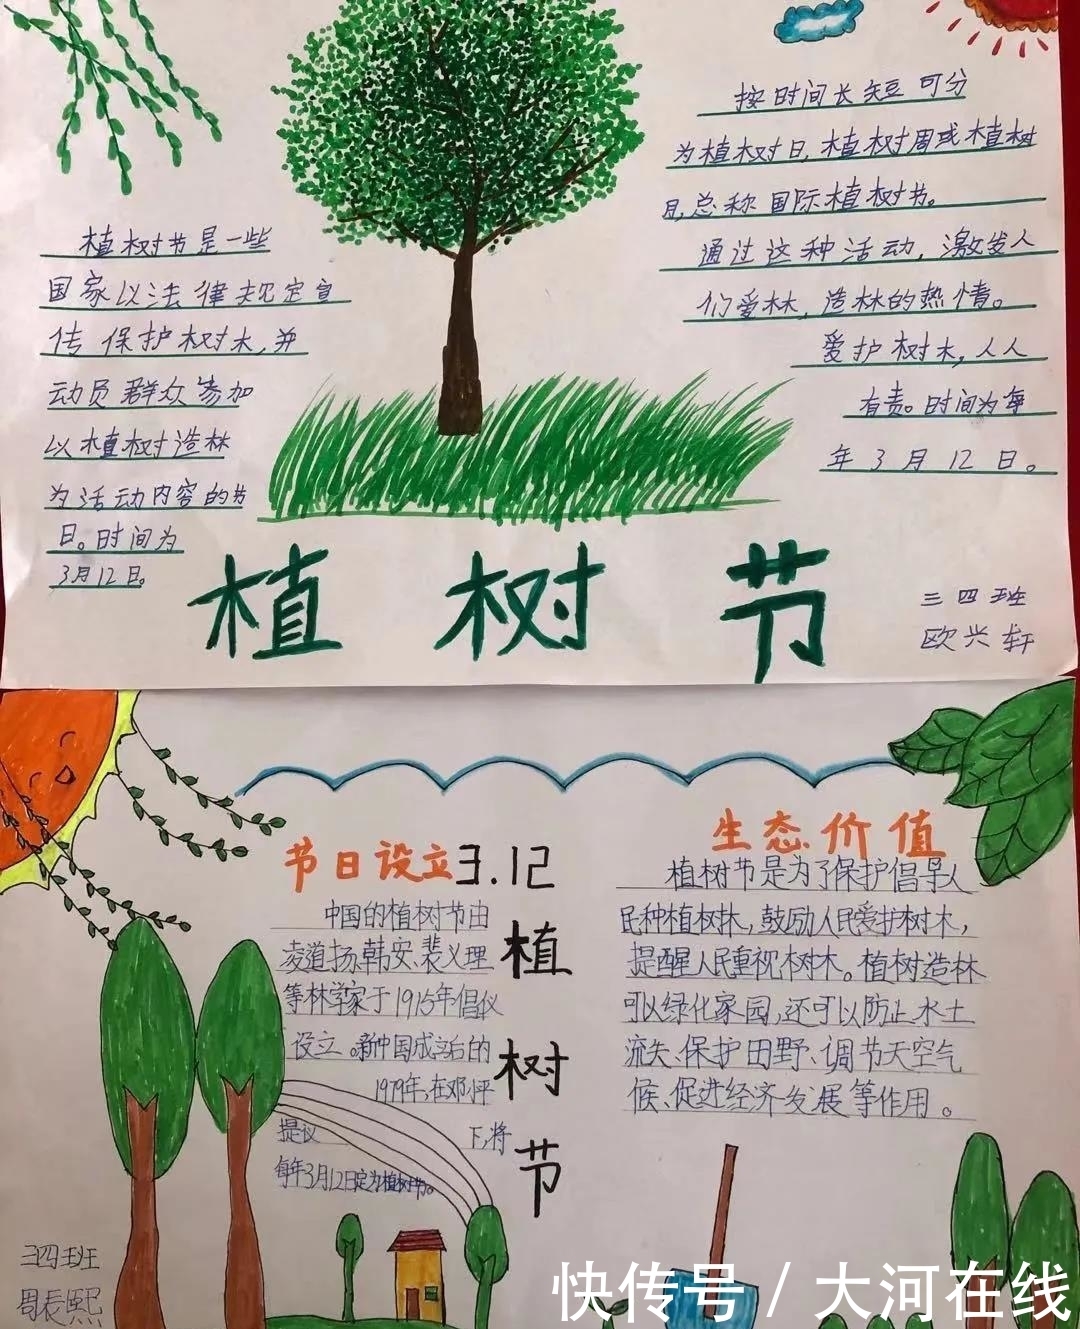 植树节是一些
国家以法律规定宣
传保护树木,并
动员群众参加
以植树造林
为活动内容的节
日。时间为
3月12日。
按时间长短可分
为植树日,植树周或植树
月,总称国际植树节。
通过这种活动,激发人
们爱林,造林的热情。
爱护树木,人人
有责。时间为每
年3月12日。
植树节
三四班
欧兴轩
节日设立
中国的植树节由
凌道扬、韩安、裴义理
等林学家于1915年倡仪
设立。新中国成立后的
1979年,在邓小平
提议下,将
每年3月12日定为植树节。
3.12
植
树
节
生态价值
植树节是为了保护倡导人
民种植树林,鼓励人民爱护树木,
提醒人民重视树木。植树造林
可以绿化家园,还可以防止水土
流失、保护田野、调节天空气
候、促进经济发展等作用。
三四班
周辰熙
快传号/大河在线